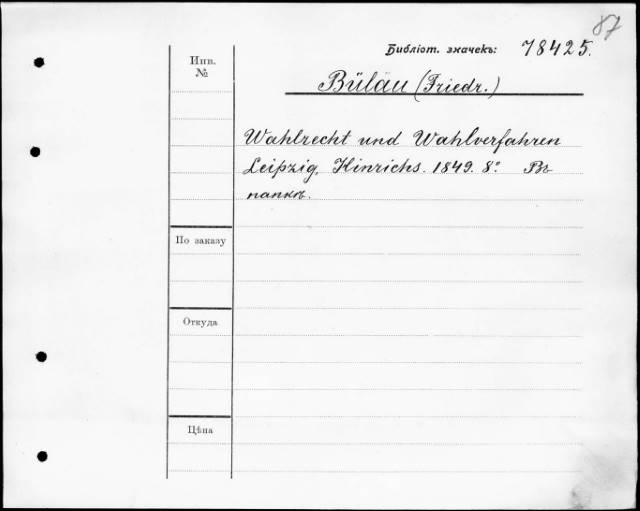 87
Библіот. значекъ: 78425.
Инв.
№
Bülau (Friedr.)
Wahlrecht und Wahlverfahren
Leipzig, Hinrichs. 1849. 8º. Въ
папкѣ.
По заказу
Откуда
Цѣна